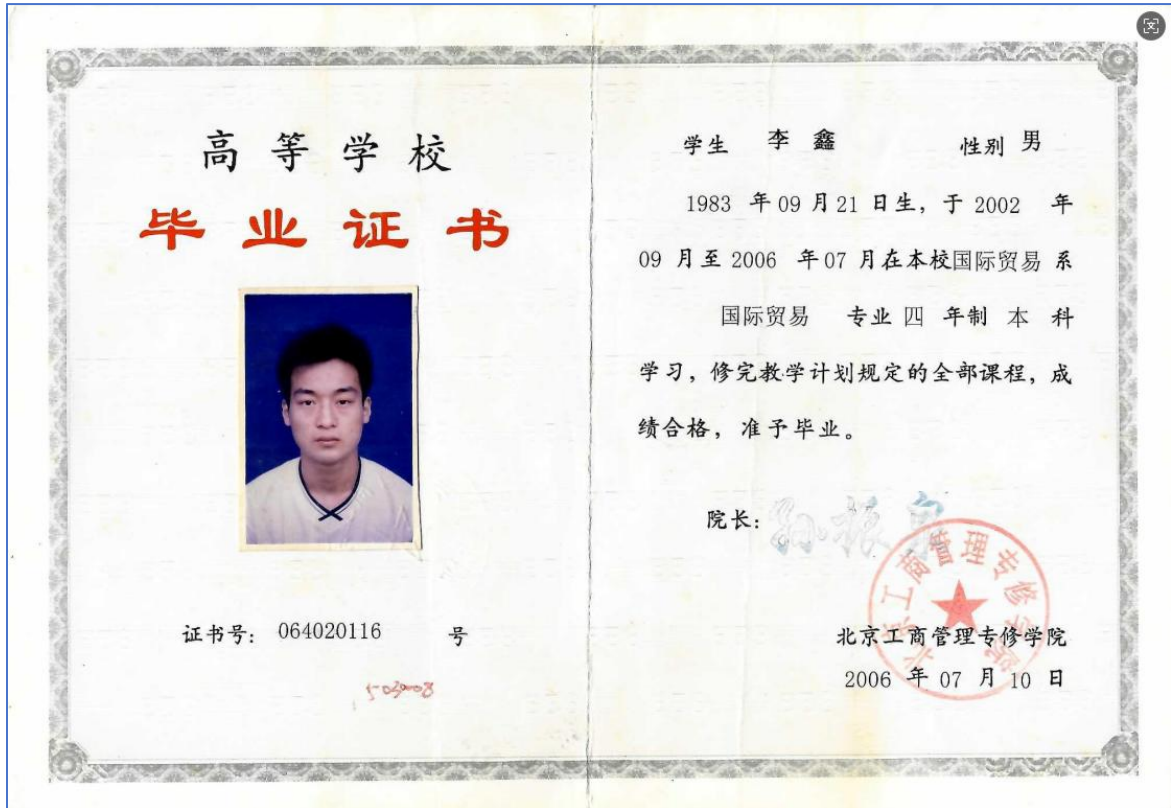 高等学校
毕业证书
证书号: 064020116 号
学生 李鑫 性别 男
1983 年 09 月 21 日生, 于 2002 年
09 月至 2006 年 07 月在本校国际贸易 系
国际贸易 专业 四 年制 本 科
学习, 修完教学计划规定的全部课程, 成
绩合格, 准予毕业。
院长:
北京工商管理专修学院
北京工商管理专修学院
2006 年 07 月 10 日